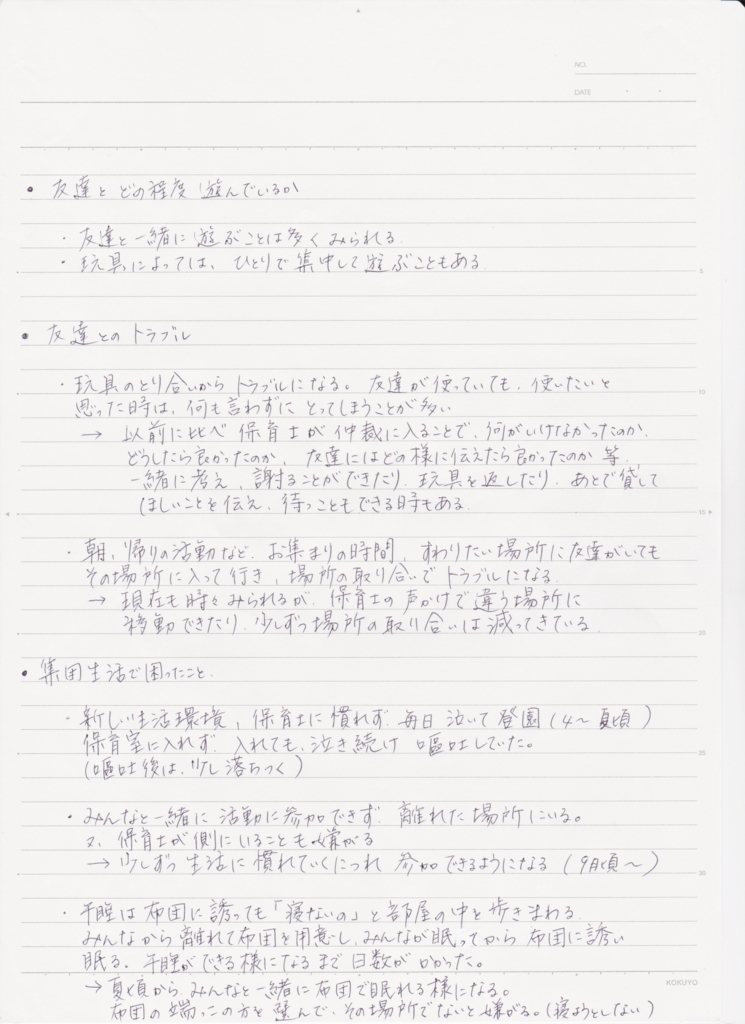 NO.
DATE
• 友達と どの程度 遊んでいるか
・友達と一緒に遊ぶことは多くみられる。
・玩具によっては、ひとりで集中して遊ぶこともある。
5
• 友達とのトラブル
・玩具のとり合いからトラブルになる。友達が使っていても、使いたいと
10
思った時は、何も言わずに とってしまうことが多い
→ 以前に比べ 保育士が仲裁に入ることで、何がいけなかったのか、
どうしたら良かったのか、友達にはどの様に伝えたら良かったのか 等
一緒に考え、謝ることができたり、玩具を返したり、あとで貸して
ほしいことを伝え、待つこともできる時もある。
15
・朝、帰りの活動など、お集まりの時間、すわりたい場所に友達がいても
その場所に入って行き、場所の取り合いでトラブルになる。
→ 現在も時々みられるが、保育士の声かけで違う場所に
移動できたり、少しずつ場所の取り合いは減ってきている。
20
• 集団生活で困ったこと。
・新しい生活環境、保育士に慣れず、毎日 泣いて登園(4〜夏頃)
保育室に入れず、入れても、泣き続け 嘔吐していた。
25
(嘔吐後は、少し落ちつく)
・みんなと一緒に 活動に参加できず、離れた場所にいる。
又、保育士が側にいることも嫌がる
→ 少しずつ 生活に慣れていくにつれ 参加できるようになる (9月頃〜)
30
・午睡は布団に誘っても「寝ないの」と部屋の中を歩きまわる。
みんなから離れて布団を用意し、みんなが眠ってから 布団に誘い
眠る。午睡ができる様になるまで 日数がかかった。
KOKUYO
→ 夏頃から みんなと一緒に布団で眠れる様になる。
布団の端っこの方を選んで、その場所でないと嫌がる。(寝ようとしない)